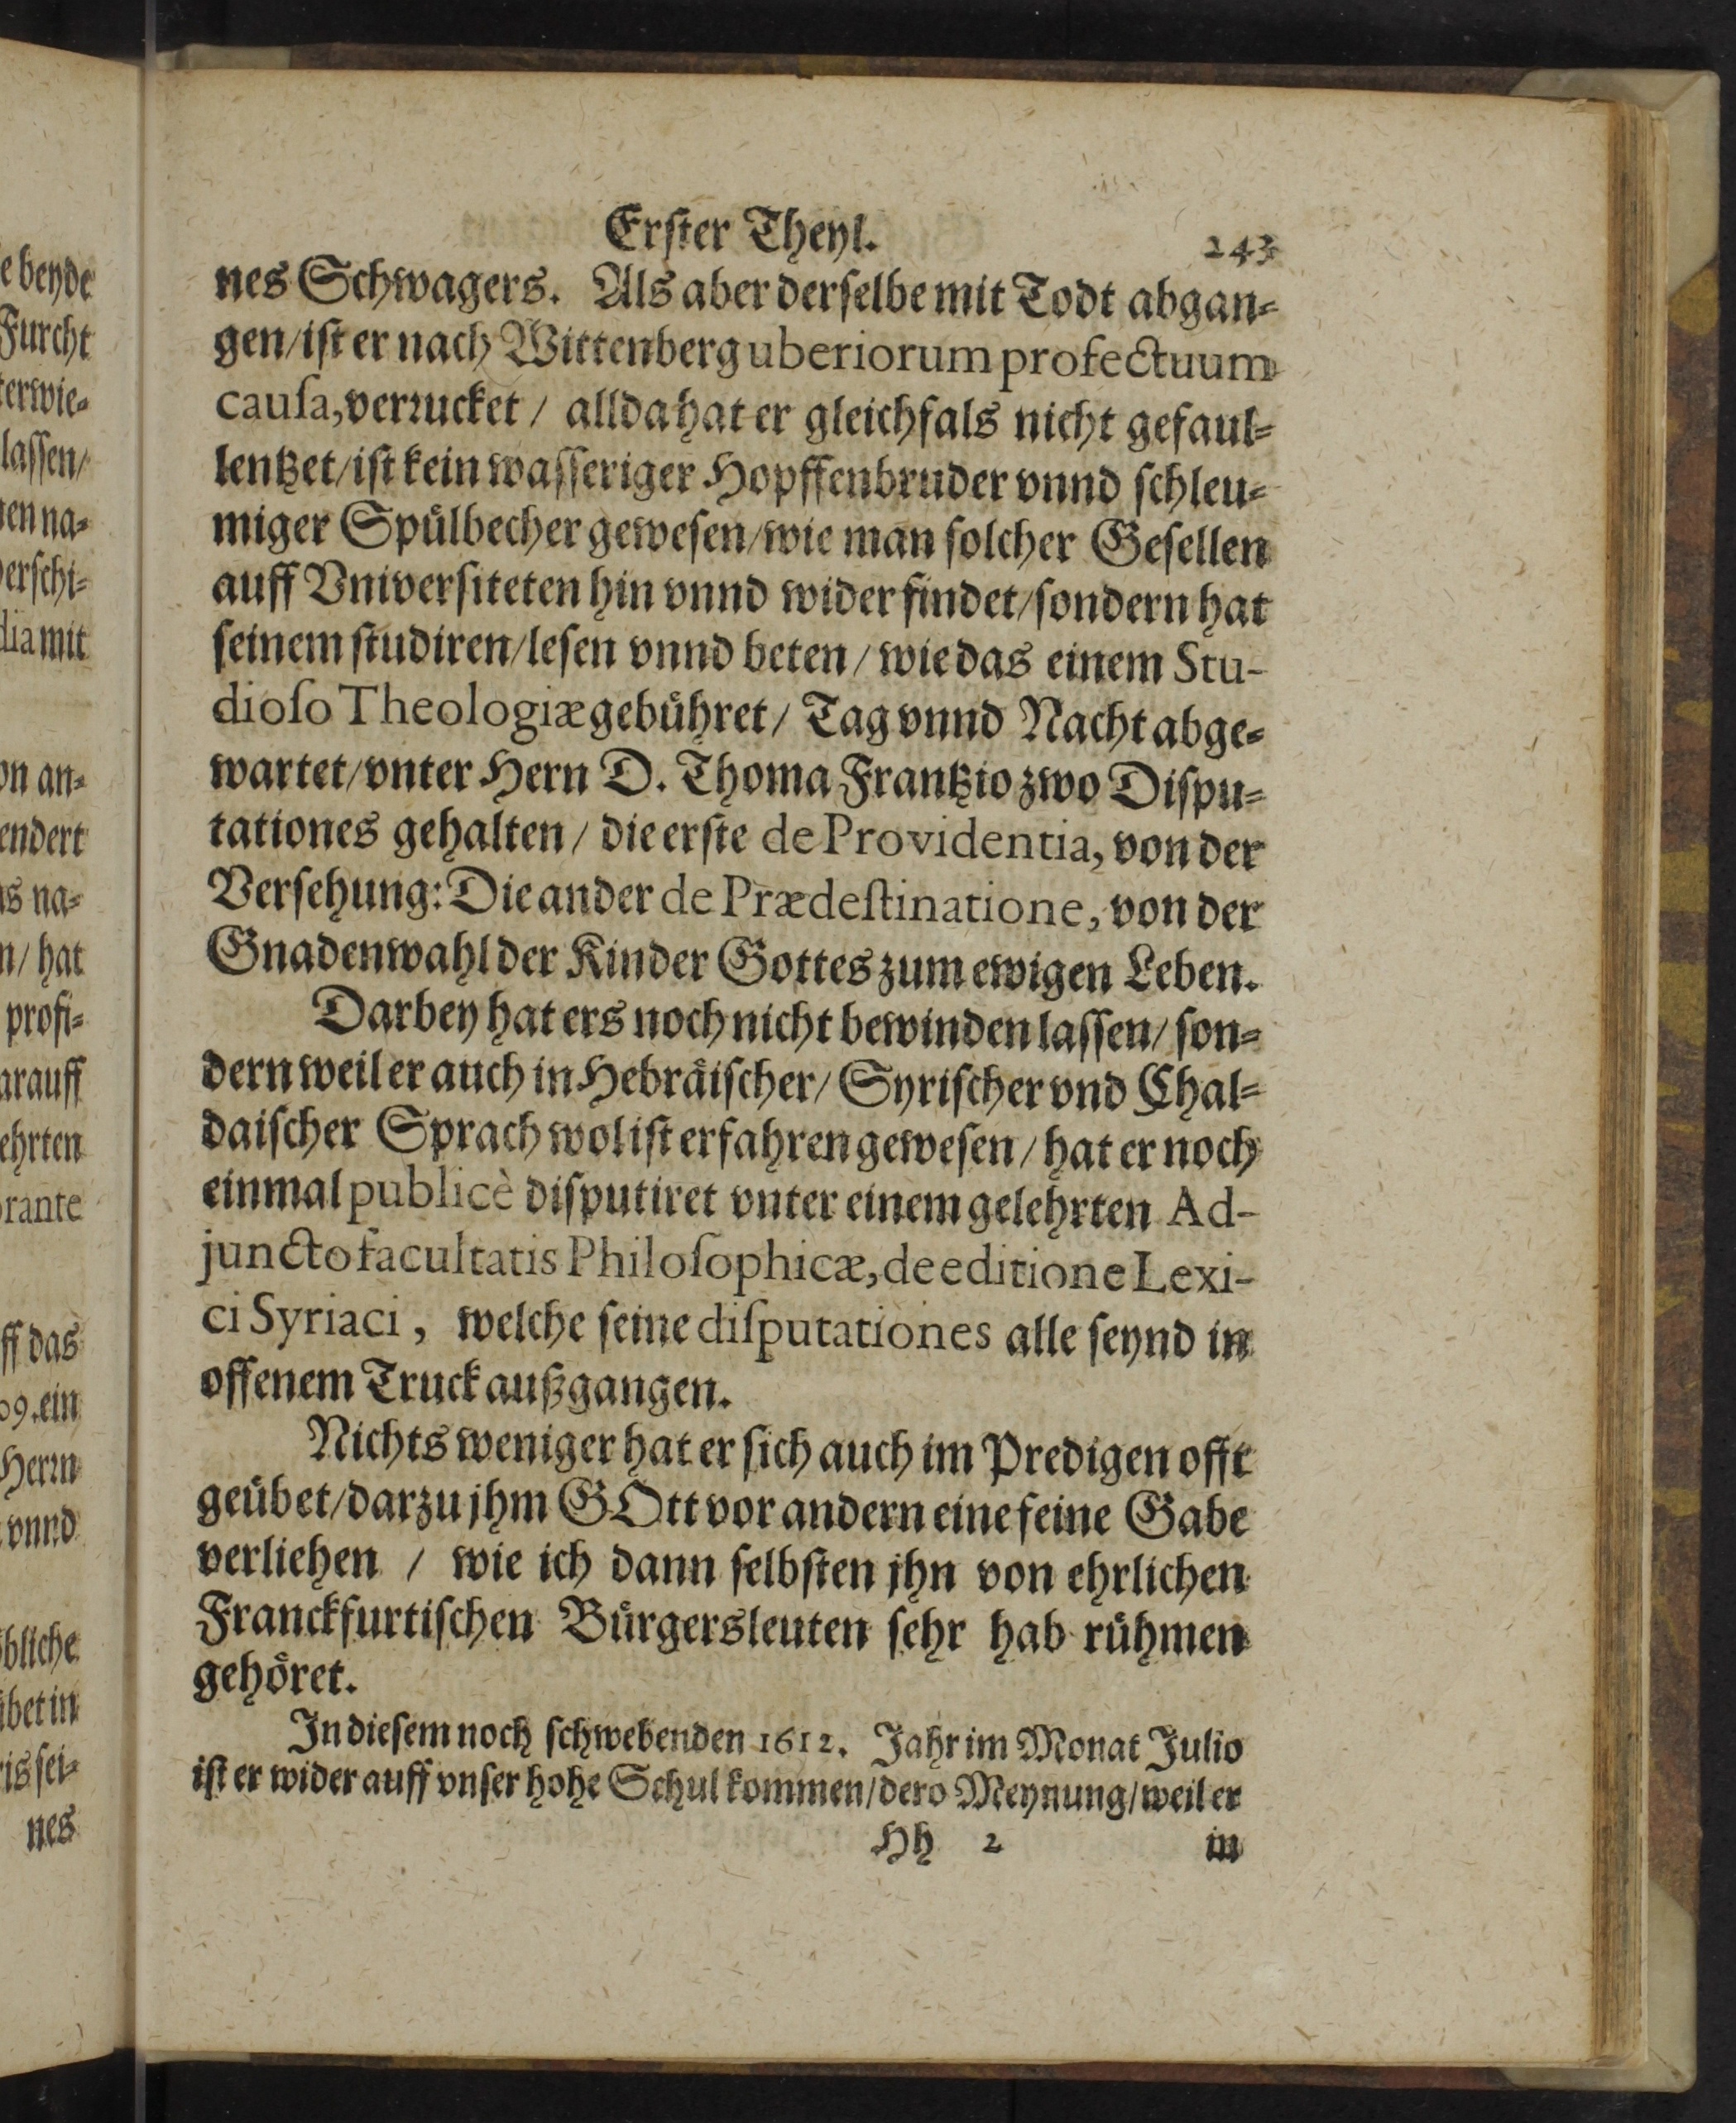 Erſter Theyl. 243
nes Schwagers. Als aber derſelbe mit Todt abgan⸗
gen/iſt er nach Wittenberg uberiorum profectuum
cauſa, verꝛucket / allda hat er gleichfals nicht gefaul⸗
lentzet/iſt kein waſſeriger Hopffenbruder vnnd ſchleu⸗
miger Spuͤlbecher geweſen/wie man ſolcher Geſellen
auff Vniverſiteten hin vnnd wider findet/ſondern hat
ſeinem ſtudiren/leſen vnnd beten / wie das einem Stu-
dioſo Theologiæ gebuͤhret/ Tag vnnd Nacht abge⸗
wartet/vnter Hern D. Thoma Frantzio zwo Diſpu⸗
tationes gehalten / die erſte de Providentia, von der
Verſehung: Die ander de Prædeſtinatione, von der
Gnadenwahl der Kinder Gottes zum ewigen Leben.
Darbey hat ers noch nicht bewinden laſſen/ ſon⸗
dern weil er auch in Hebraͤiſcher/ Syriſcher vnd Chal⸗
daiſcher Sprach wol iſt erfahren geweſen / hat er noch
einmal publicè diſputiret vnter einem gelehrten Ad-
juncto facultatis Philoſophicæ, de editione Lexi-
ci Syriaci, welche ſeine diſputationes alle ſeynd in
offenem Truck außgangen.
Nichts weniger hat er ſich auch im Predigen offt
geuͤbet/darzu jhm GOtt vor andern eine feine Gabe
verliehen / wie ich dann ſelbſten jhn von ehrlichen
Franckfurtiſchen Buͤrgersleuten ſehr hab ruͤhmen
gehoͤret.
In dieſem noch ſchwebenden 1612. Jahr im Monat Julio
iſt er wider auff vnſer hohe Schul kommen/dero Meynung/weil er
Hh 2 in